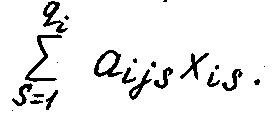 $\sum_{s=1}^{q_i} a_{ijs} x_{is}.$